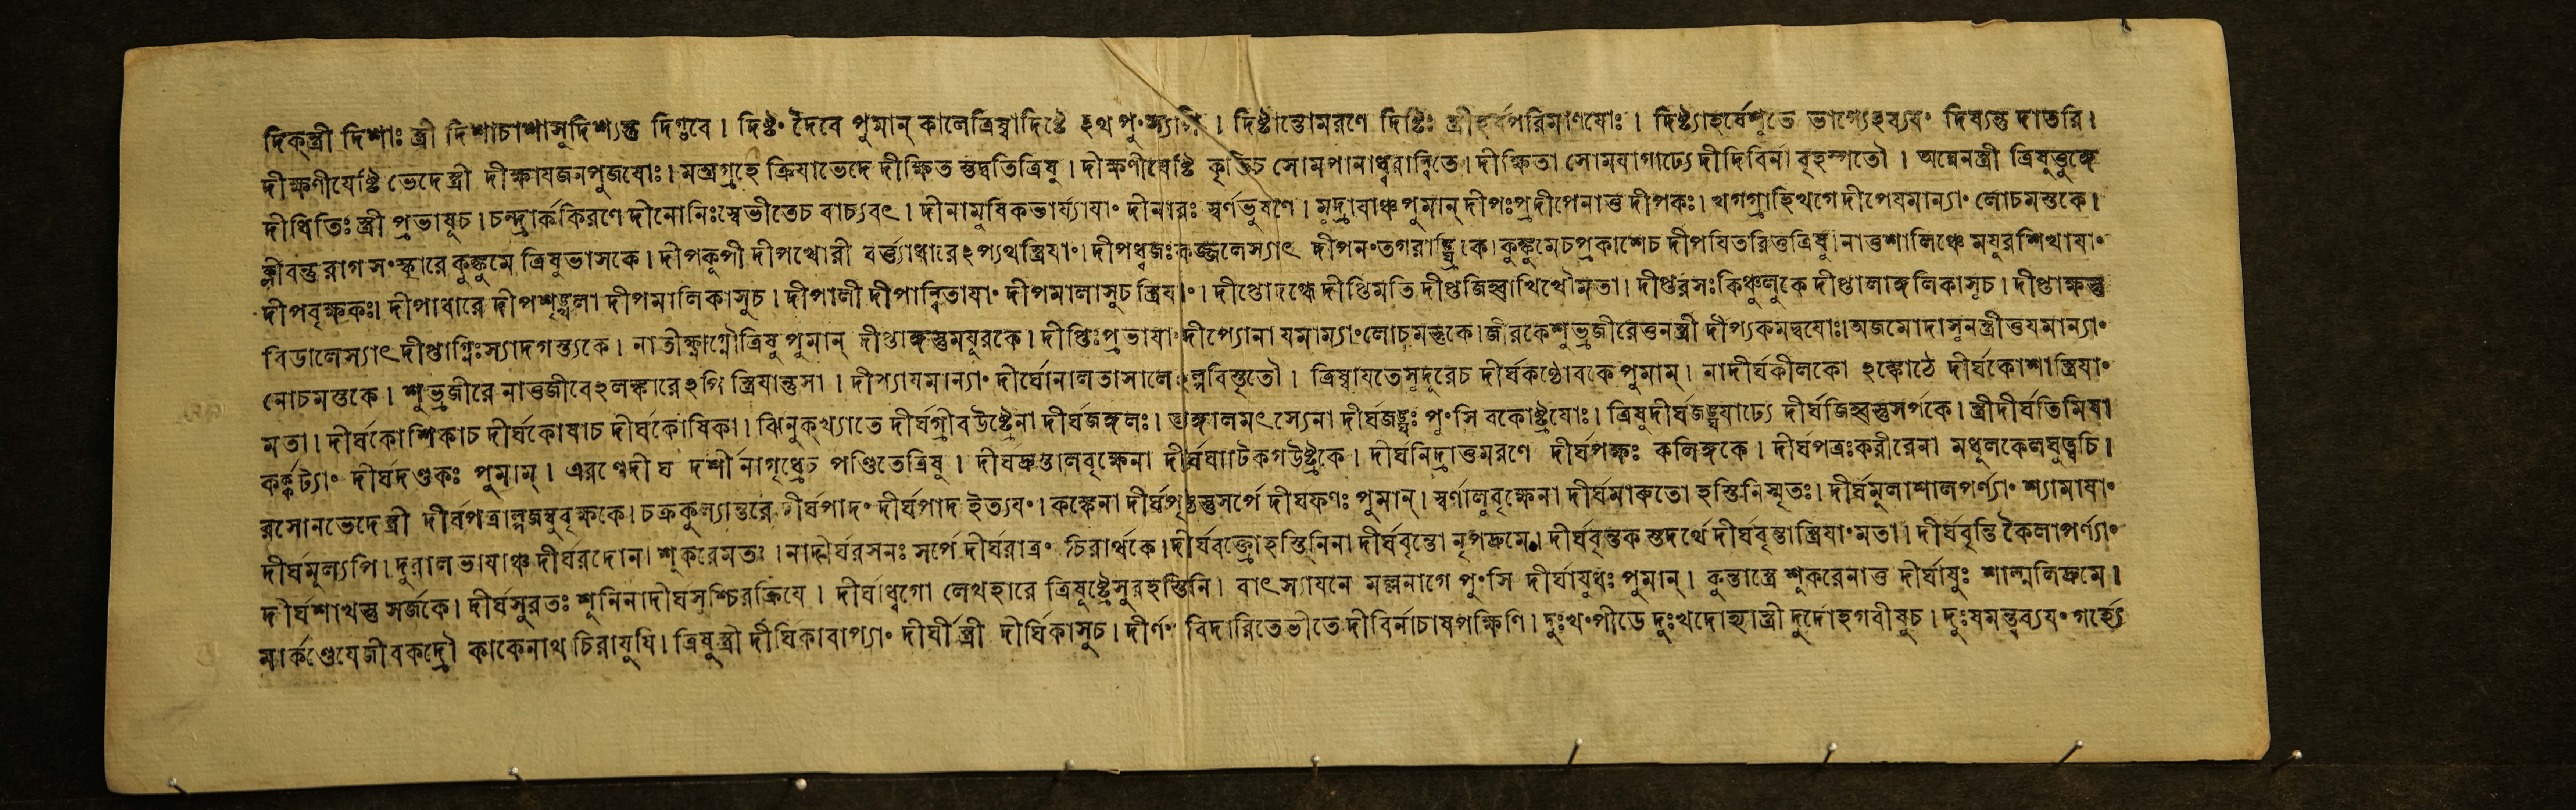 দিক্স্ত্রী দিশাঃ স্ত্রী দিশাচাশাসুদিশ্যন্তু দিগ্ভবে। দিষ্টং দৈবে পুমান্ কালেত্রিষ্বাদিষ্টে ঽথ পুংস্যপি। দিষ্টান্তোমরণে দিষ্টিঃ স্ত্রীহর্ষপরিমাণযোঃ। দিষ্ট্যাহর্ষেশুভে ভাগ্যেঽব্যযং দিব্যন্তু দাতরি।
দীক্ষণীযেষ্টি ভেদেস্ত্রী দীক্ষাযজনপুজযোঃ। মন্ত্রগ্রহে ক্রিযাভেদে দীক্ষিত স্তদ্বতিত্রিষু। দীক্ষণীযেষ্টি কৃতিচ সোমপানাধ্বরান্বিতে। দীক্ষিতা সোমযাগাঢ্যে দীদিবির্না বৃহস্পতৌ। অন্নেনস্ত্রী ত্রিষুত্তুঙ্গে
দীধিতিঃ স্ত্রী প্রভাষূচ। চন্দ্রার্ককিরণে দীনোনিঃস্বেভীতেচ বাচ্যবৎ। দীনামুষিকভার্য্যাযাং দীনারঃ স্বর্ণভুষণে। মুদ্রাযাঞ্চ পুমান্ দীপঃপ্রদীপেনাত্ত দীপকঃ। খগগ্রাহিখগে দীপেযমান্যাং লোচমস্তকে।
ক্লীবন্তু রাগ সংস্কারে কুঙ্কুমে ত্রিষুভাসকে। দীপকূপী দীপখোরী বর্ত্ত্যাধারেঽপ্যথস্ত্রিযাং। দীপধ্বজঃকজ্জলেস্যাৎ দীপনংতগরাঙ্ঘ্রিকে। কুঙ্কুমেচপ্রকাশেচ দীপযিতরিত্তত্রিষু। নাত্তশালিঞ্চে মযুরশিখাযাং
দীপবৃক্ষকঃ। দীপাধারে দীপশৃঙ্খলা দীপমালিকাসুচ। দীপালী দীপান্বিতাযাং দীপমালাসুচ স্ত্রিযাং। দীপ্তোদগ্ধে দীপ্তিমতি দীপ্তজিহ্বাখিখৌমতা। দীপ্তরসঃকিঞ্চুলুকে দীপ্তালাঙ্গলিকাসূচ। দীপ্তাক্ষস্তু
বিডালেস্যাৎদীপ্তাগ্নিঃস্যাদগস্ত্যকে। নাতীক্ষ্ণাগ্নৌত্রিষু পুমান্ দীপ্তাঙ্গস্তুমযুরকে। দীপ্তিঃপ্রভাযাংদীপ্যোনা যমাম্যাংলোচমস্তকে। জীরকেশুভ্রজীরেত্তনস্ত্রী দীপ্যকমদ্বযোঃ।অজমোদাসূনস্ত্রীত্তযমান্যাং
নোচমস্তকে। শুভ্রজীরে নাত্তজীবেঽলঙ্কারেঽপি স্ত্রিযান্তুসা। দীপ্যাযমান্যাং দীর্ঘোনালতাসালে বিস্তৃতৌ। ত্রিষ্বাযতেসূদূরেচ দীর্ঘকণ্ঠোবকে পুমান্। নাদীর্ঘকীলকো ঽঙ্কোঠে দীর্ঘকোশাস্ত্রিযাং
মতা। দীর্ঘকোশিকাচ দীর্ঘকোষাচ দীর্ঘকোষিকা। ঝিনুক্খ্যাতে দীর্ঘগ্রীবউষ্ট্রেনা দীর্ঘজঙ্গলঃ। ভাঙ্গালমৎস্যেনা দীর্ঘজঙ্ঘঃ পুংসি বকোষ্ট্রযোঃ। ত্রিষুদীর্ঘজঙ্ঘযাঢ্যে দীর্ঘজিহ্বস্তুসর্পকে। স্ত্রীদীর্ঘতিমিষা
কর্ক্কট্যাং দীর্ঘদণ্ডকঃ পুমাম্। এরণ্ডেদীর্ঘ দর্শী নাগৃধ্রেচ পণ্ডিতেত্রিষু। দীর্ঘদ্রুস্তালবৃক্ষেনা দীর্ঘঘাটিকগউষ্ট্রকে। দীর্ঘনিদ্রাত্তমরণে দীর্ঘপক্ষঃ কলিঙ্গকে। দীর্ঘপত্রঃকরীরেনা মধুলকেলঘুত্বচি।
রসোনভেদে স্ত্রী দীর্ঘপত্রাল্পজম্বুবৃক্ষকে। চক্রকুল্যান্তরে দীর্ঘপাদং দীর্ঘপাদ ইত্যযং। কঙ্কেনা দীর্ঘপৃষ্ঠস্তুসর্পে দীর্ঘফণঃ পুমান্। স্বর্ণালুবৃক্ষেনা দীর্ঘমারুতো হস্তিনিস্মৃতঃ। দীর্ঘমুলাশালপর্ণ্যাং শ্যামাযাং
দীর্ঘমূল্যপি। দুরালভাযাঞ্চ দীর্ঘরদোনা শূকরেমতঃ। নাদীর্ঘরসনঃ সর্পে দীর্ঘরাত্রং চিরার্থকে। দীর্ঘবক্ত্রোহস্তিনিনা দীর্ঘবৃন্তো নৃপদ্রুমে। দীর্ঘবৃন্তক স্তদর্থে দীর্ঘবৃন্তাস্ত্রিযাংমতা। দীর্ঘবৃন্তি কৈলাপর্ণ্যাং
দীর্ঘশাখস্তু সর্জকে। দীর্ঘসুরতঃ শূনিনাদীর্ঘসূশ্চিরক্রিযে। দীর্ঘাধ্বগো লেখহারে ত্রিষূষ্ট্রেসুরহস্তিনি। বাৎস্যাযনে মল্লনাগে পুংসি দীর্ঘাযুধঃ পুমান্। কুন্তাস্ত্রে শূকরেনাত্ত দীর্ঘাযুঃ শাল্মলিদ্রুমে।
মার্কণ্ডেযেজীবকদ্রৌ কাকেনাথ চিরাযুষি। ত্রিষুস্ত্রী দীর্ঘিকাবাপ্যাং দীর্ঘী স্ত্রী দীর্ঘিকাসুচ। দীর্ণং বিদারিতেভীতে দীবির্নাচাষপক্ষিণি। দুঃখংপীডে দুঃখদোহ্যাস্ত্রী দুর্দোহগবীষুচ। দুঃষমন্ত্বব্যযং গর্হ্যে